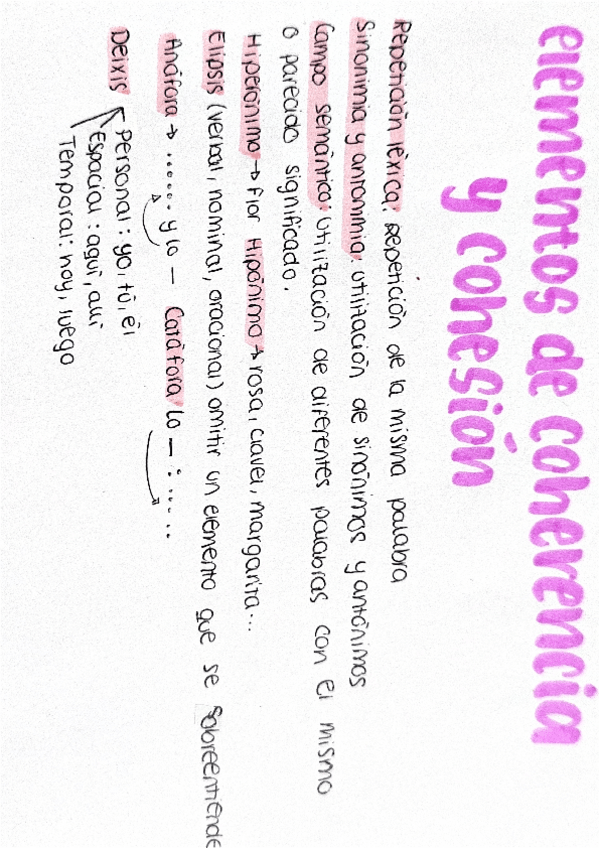 elementos de coherencia
y cohesión
Repetición léxica: Repetición de la misma palabra
Sinonimia y antonimia: utilización de sinónimos y antónimos
Campo semántico: utilización de diferentes palabras con el mismo
o parecido significado.
Hiperónimo → flor Hipónimo → rosa, clavel, margarita...
Elipsis (verbal, nominal, oracional) omitir un elemento que se sobreentiende
Anáfora → ...... y lo — Catáfora lo — : .....
Deixis Personal: yo, tú, él
Espacial: aquí, allí
Temporal: hoy, luego